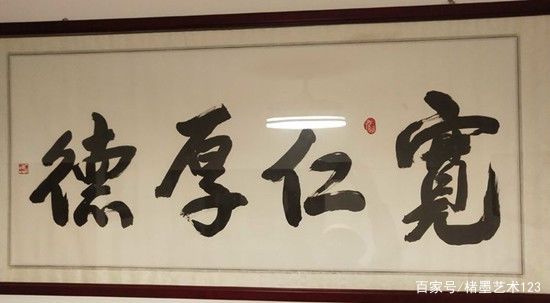 寬仁厚德
百家号/楮墨艺术123